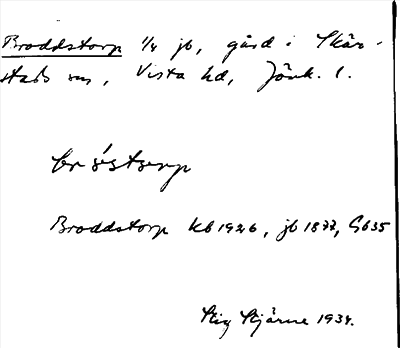 Broddstorp 1/4 jb, gård i Skär-
stads sn, Vista hd, Jönk. l.
bróstorp
Broddstorp kb 1926, jb 1877, Gb 35
Stig Stjärne 1934.